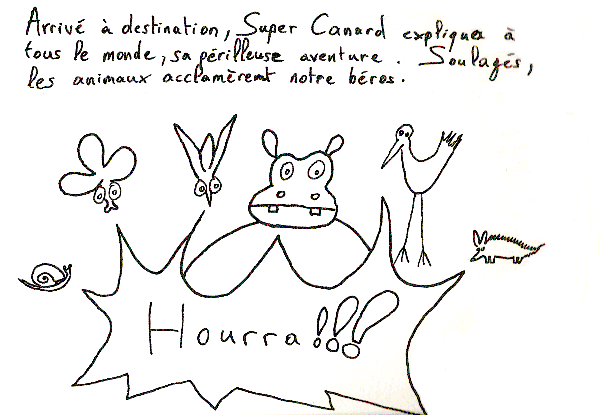 Arrivé à destination, Super Canard expliqua à
tous le monde, sa périlleuse aventure. Soulagés,
les animaux acclamèrent notre héros.
Hourra!!!